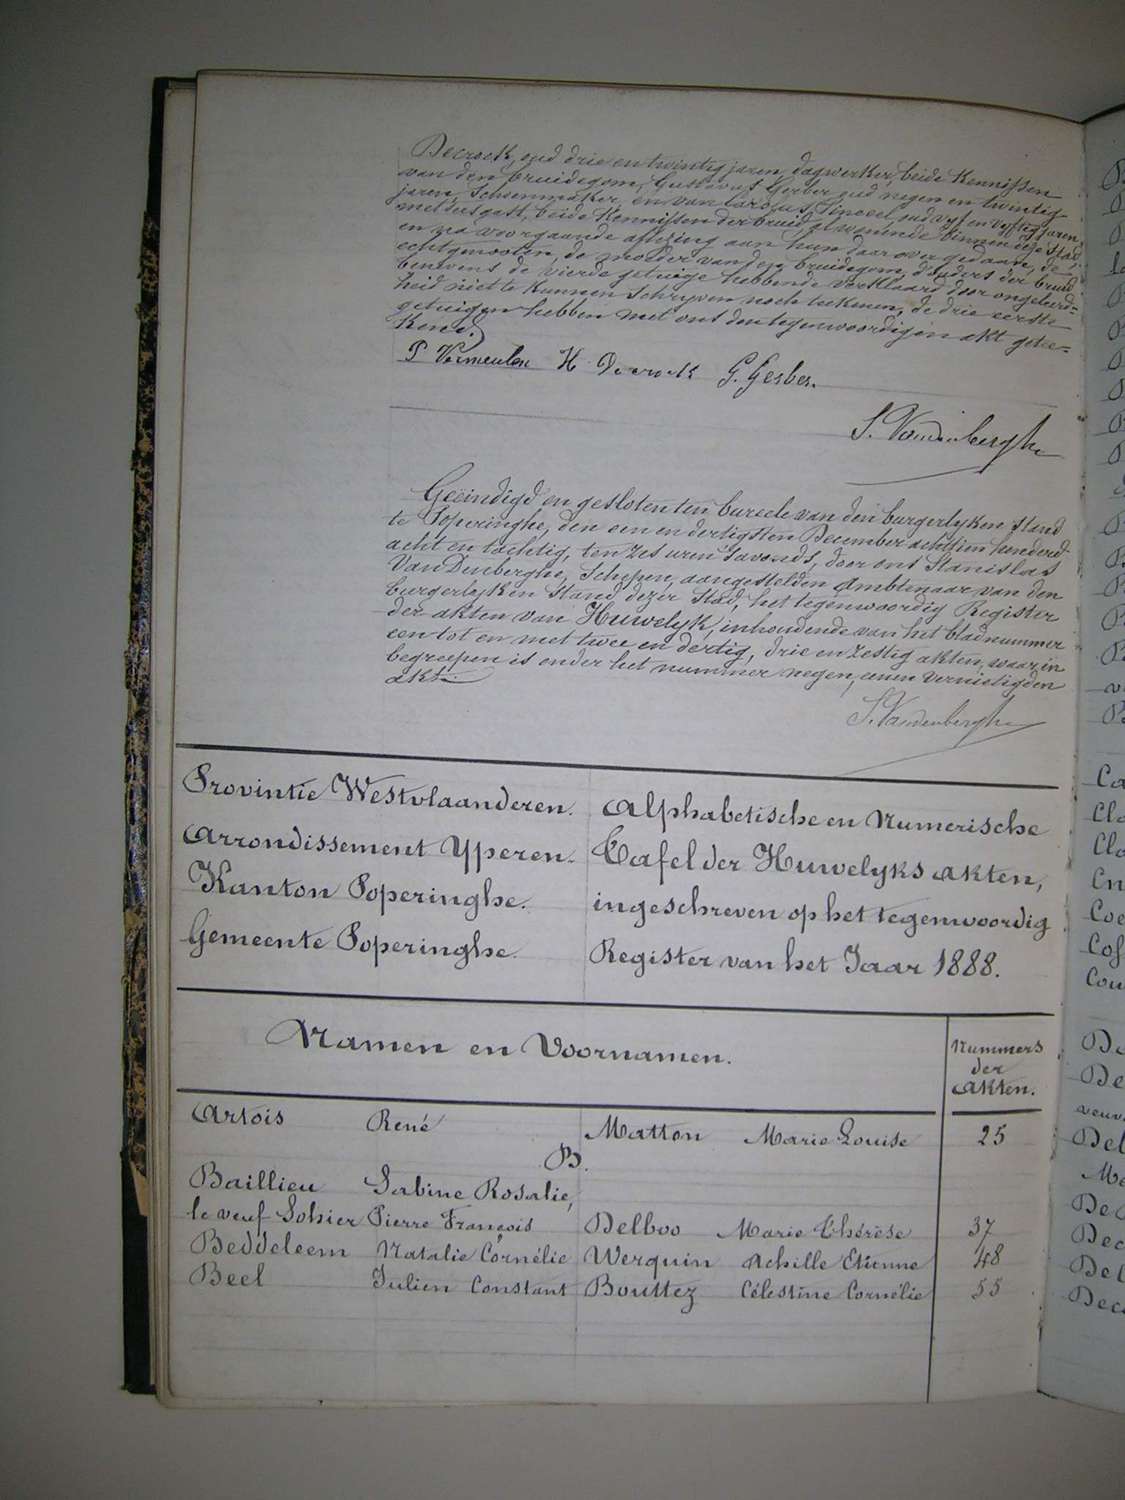 Decrock, oud drie en twintig jaren, dagwerker, beide Kennissen
van den bruidegom, Gustavus Gerber oud negen en twintig
jaren, Schoenmaker, en van Carolus oud vyf en vyftig jaren,
metsersgast, beide Kennissen der bruid, al wonende binnen deze Stad,
en na voorgaande aflezing aan hun daarover gedaan, de
echtgenooten, de moeder van den bruidegom, d'ouders der bruid
benevens de vierde getuige hebbende verklaard door ongeleerd=
heid niet te Kunnen Schryven noch teekenen, de drie eerste
getuigen hebben met ons den tegenwoordigen akt getee=
kend.
P Vermeulen H. Decrock G. Gerber.
S. Vandenberghe
Geeindigd en gesloten ten bureele van den burgerlyken stand
te Poperinghe, den een en dertigsten December achttien honderd
acht en tachtig, ten zes uren 'savonds, door ons Stanislas
VanDenberghe, Schepen, aangestelden Ambtenaar van den
burgerlyken Stand dezer Stad, het tegenwoordig Register
der akten van Huwelyk, inhoudende van het bladnummer
een tot en met twee en dertig, drie en zestig akten, waar in
begreepen is onder het nummer negen, eenen vernietigden
akt.
S. Vandenberghe
Provintie Westvlaanderen.
Arrondissement Yperen.
Kanton Poperinghe.
Gemeente Poperinghe.
Alphabetische en Numerische
Tafel der Huwelyks akten,
ingeschreven op het tegenwoordig
Register van het Jaar 1888.
Namen en Voornamen.
Nummers
der
Akten.
Artois René Matton Marie Louise 25
B.
Baillieu Sabine Rosalie,
le veuf Sohier Pierre François Delboo Marie Thérèse 37
Beddeleem Natalie Cornélie Werquin Achille Etienne 48
Beel Julien Constant Bouttez Célestine Cornélie 55